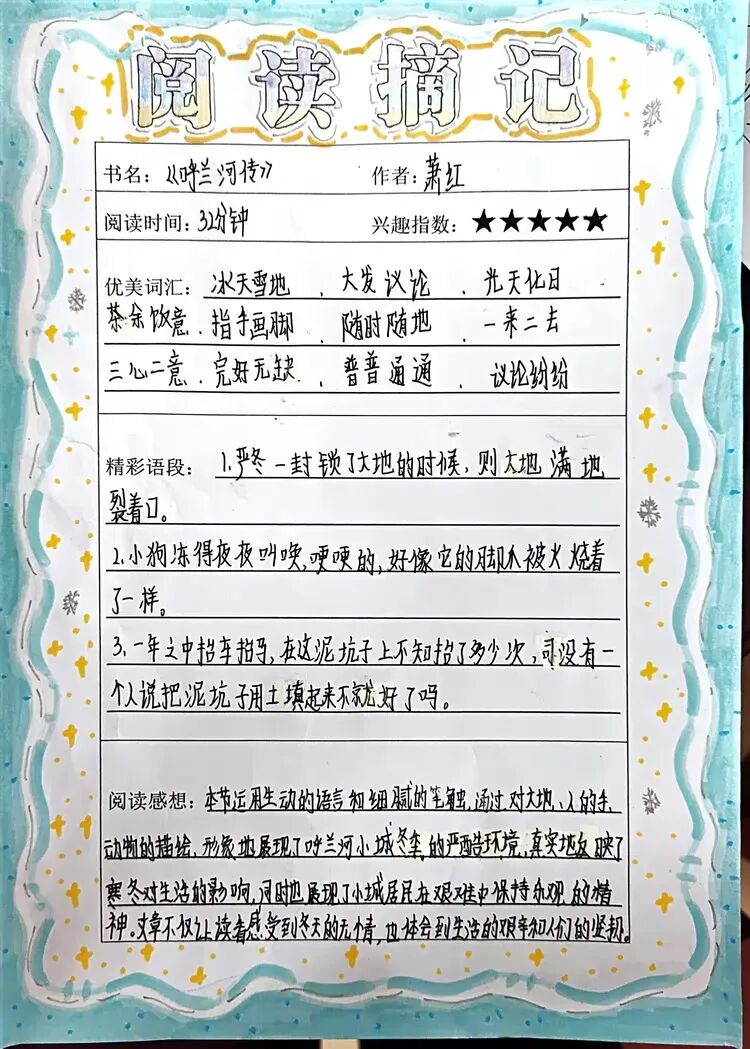 阅读摘记
书名：《呼兰河传》 作者：萧红
阅读时间：32分钟 兴趣指数：★★★★★
优美词汇：冰天雪地、大发议论、光天化日
茶余饭意、指手画脚、随时随地、一来二去
三心二意、完好无缺、普普通通、议论纷纷
精彩语段：1.严冬一封锁了大地的时候，则大地满地
裂着口。
2.小狗冻得夜夜叫唤，哽哽的，好像它的脚爪被火烧着
了一样。
3.一年之中抬车抬马，在这泥坑子上不知抬了多少次，可没有一
个人说把泥坑子用土填起来不就好了吗。
阅读感想：本节运用生动的语言和细腻的笔触，通过对大地、人的手、
动物的描绘，形象地展现了呼兰河小城冬季的严酷环境，真实地反映了
寒冬对生活的影响，同时也展现了小城居民在艰难中保持乐观的精
神。文章不仅让读者感受到冬天的无情，也体会到生活的艰辛和人们的坚韧。